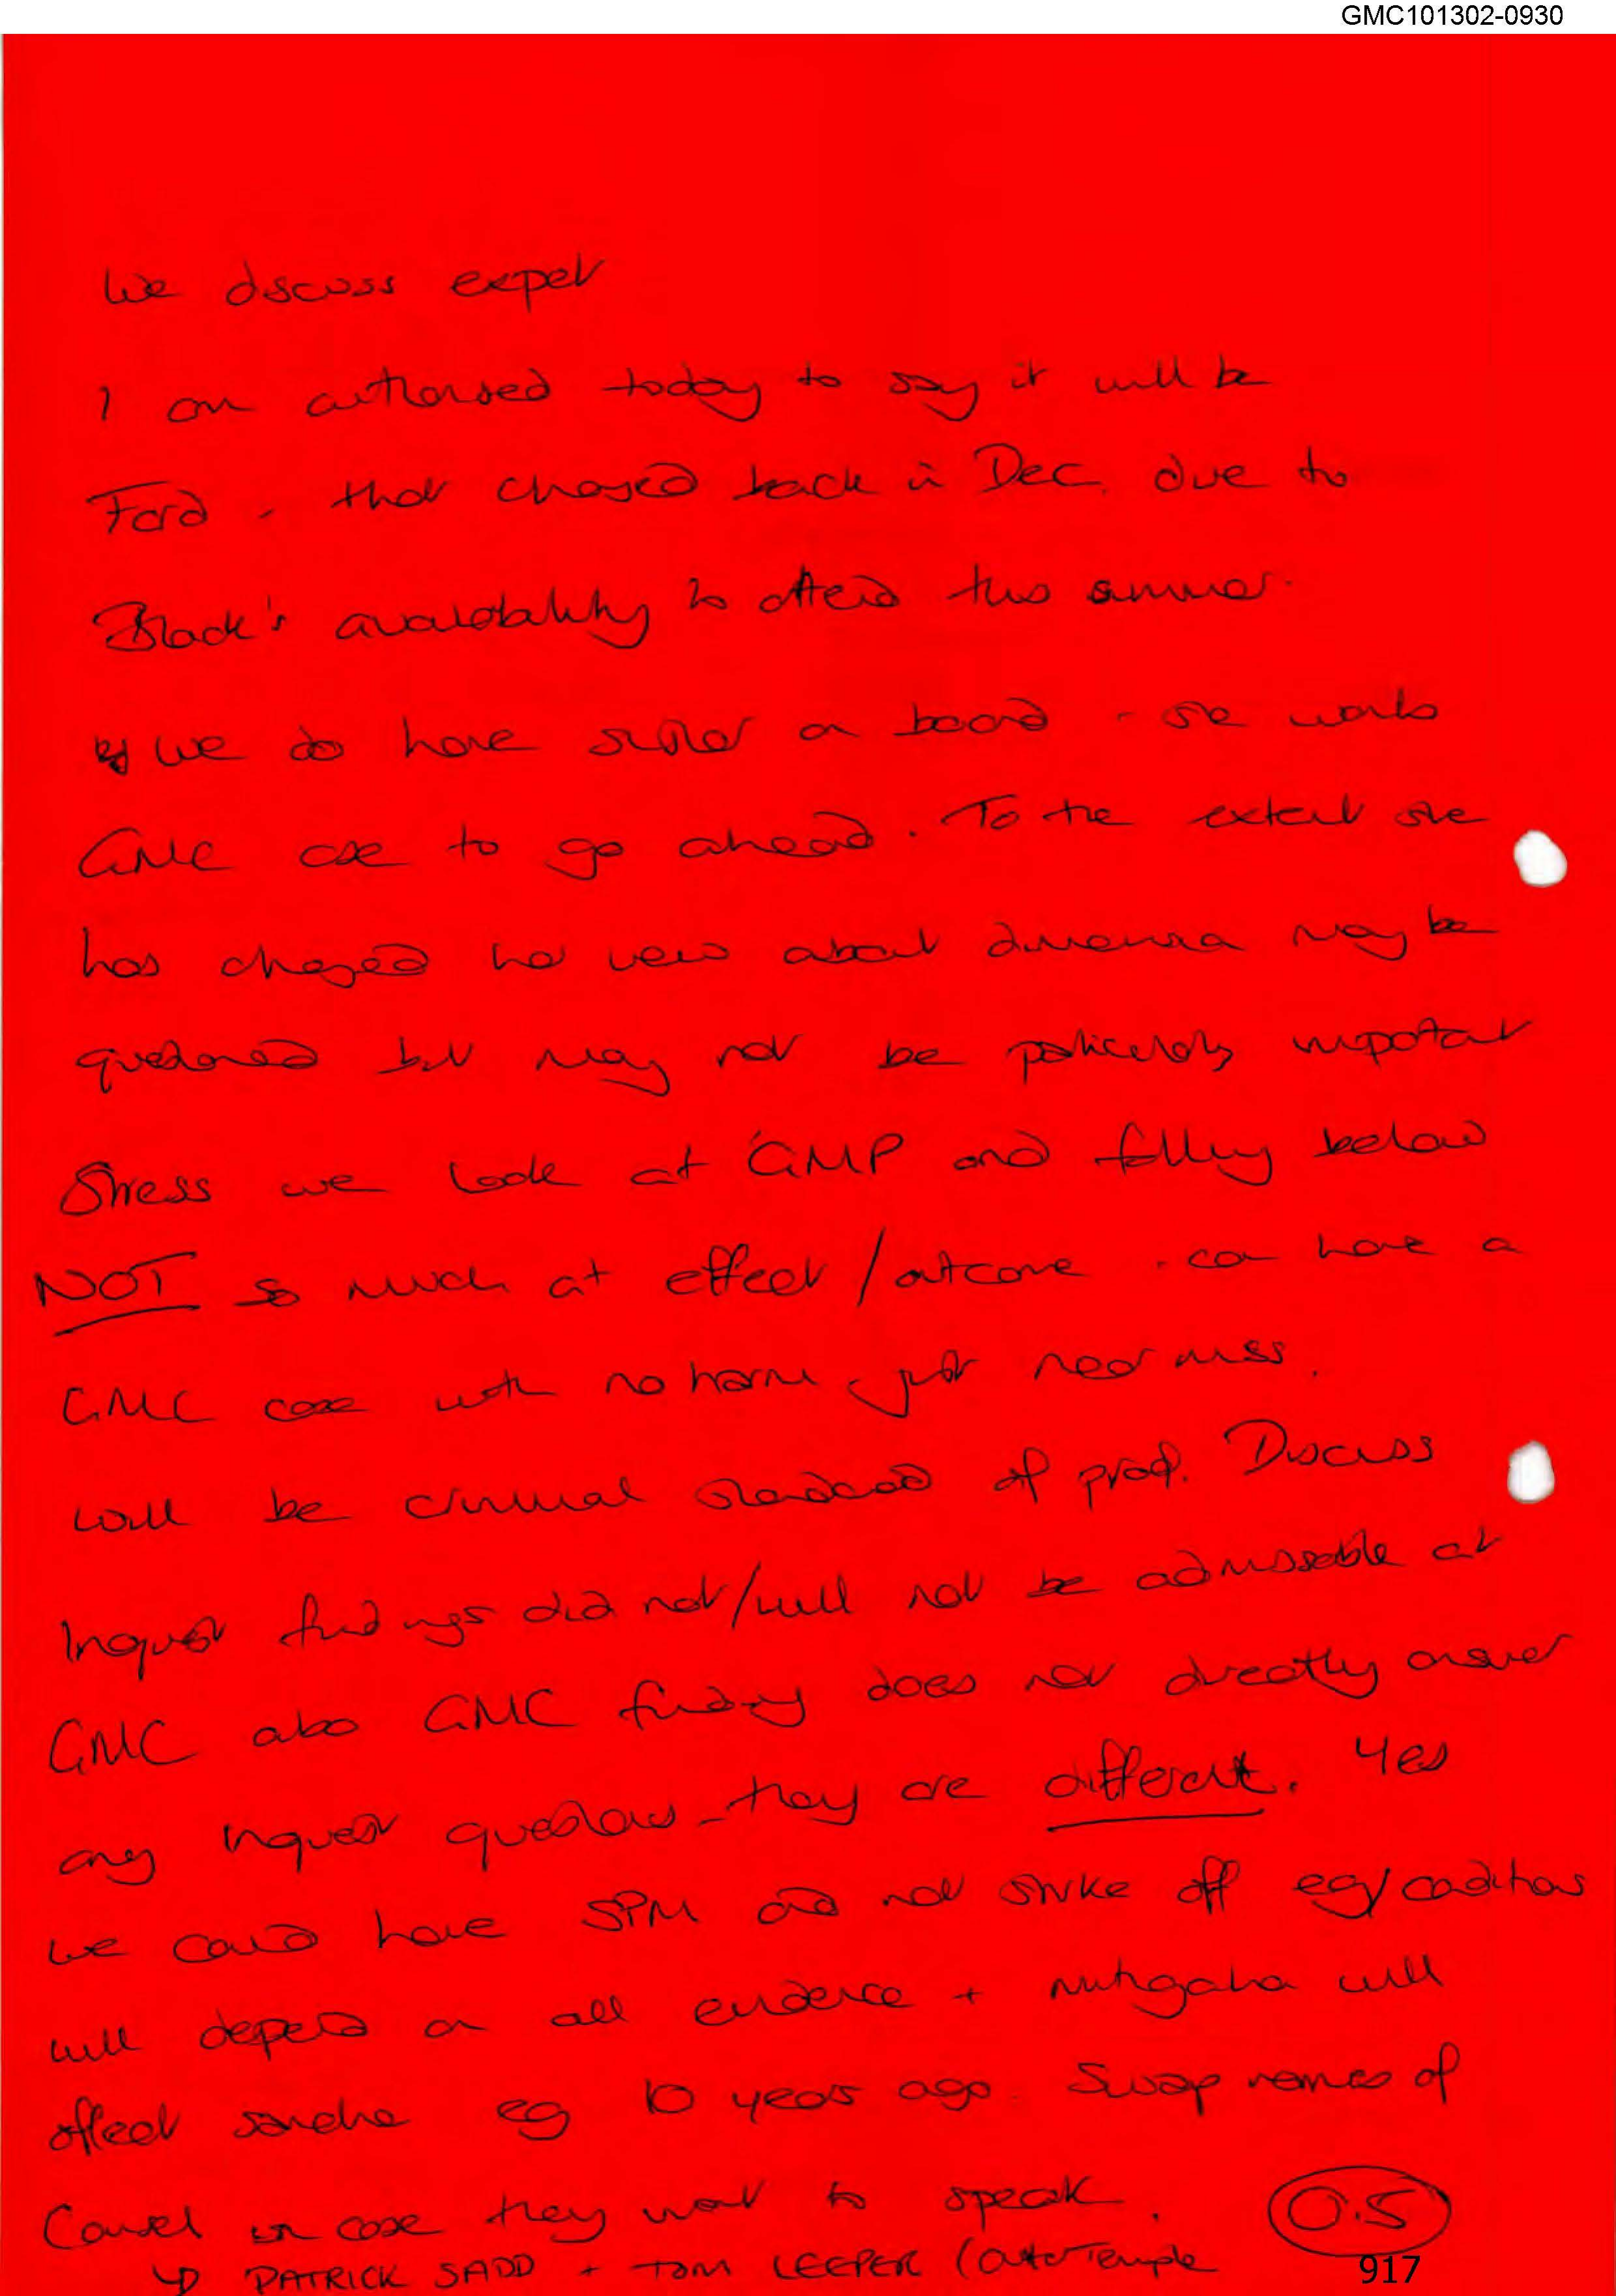 GMC101302-0930
We discuss expert
I am authorised today to say it will be
Ford - that changed back in Dec. due to
Black's availability to attend this summer.
We do have sister on board - she wants
GMC case to go ahead. To the extent she
has changed her view about dimensia may be
questioned but may not be particularly important
Stress we look at GMP and falling below
NOT so much at effect/outcome - can have a
GMC case with no harm, just near miss.
Will be criminal standard of proof. Discuss
Inquest findings did not/will not be admissable at
GMC also GMC finding does not directly answer
any inquest questions - they are different. Yes
we could have SPM and not strike off eg/conditions
will depend on all evidence + mitigation will
affect sanction eg 10 years ago. Swap names of
Counsel in case they want to speak.
0.5
↳ PATRICK SADD + TOM LEEPER (Outer Temple
917